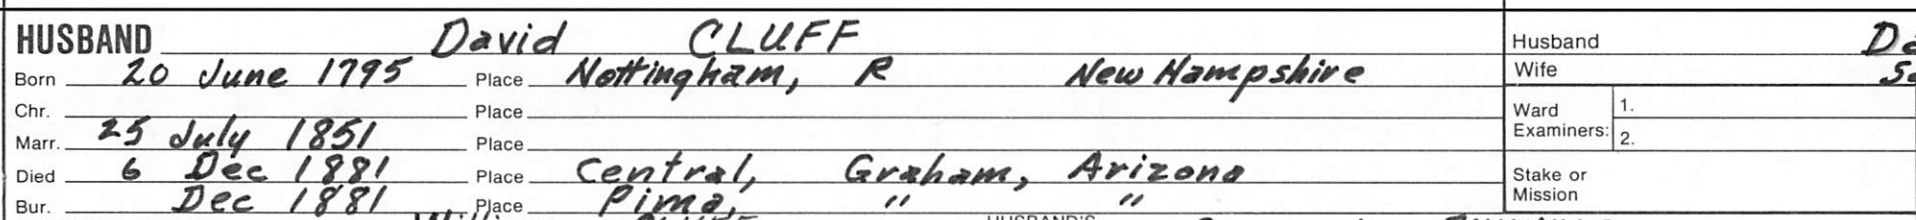 HUSBAND David CLUFF
Born 20 June 1795 Place Nottingham, R New Hampshire
Chr. Place
Marr. 25 July 1851 Place
Died 6 Dec 1881 Place Central, Graham, Arizona
Bur. Dec 1881 Place Pima, " "
HUSBAND'S
Husband
Wife
Ward Examiners: 1.
2.
Stake or
Mission